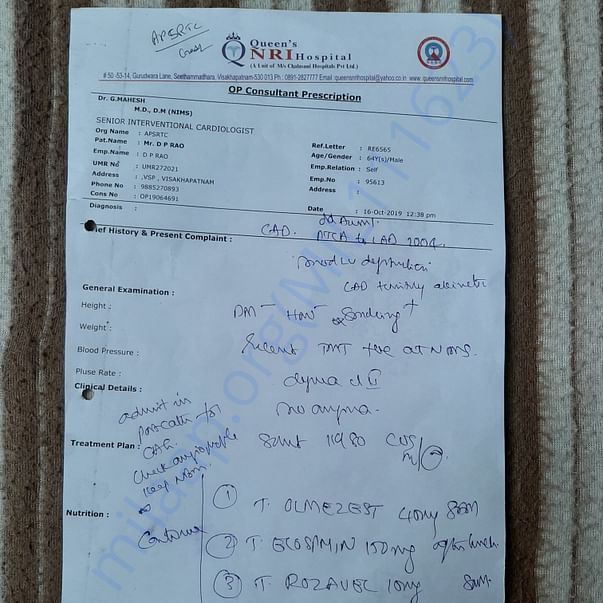 APSRTC
Queen's
NRI Hospital
(A Unit of M/s Chalasani Hospitals Pvt Ltd.)
# 50-53-14, Gurudwara Lane, Seethammadhara, Visakhapatnam-530 013 Ph : 0891-2827777 Email :queensnrihospital@yahoo.co.in www.queensnrihospital.com
OP Consultant Prescription
Dr. G.MAHESH
M.D., D.M (NIMS)
SENIOR INTERVENTIONAL CARDIOLOGIST
Org Name : APSRTC
Pat.Name : Mr. D P RAO
Emp.Name : D P RAO
UMR No : UMR272021
Address : ,VSP , VISAKHAPATNAM
Phone No : 9885270893
Cons No : OP19064691
Ref.Letter : RE6565
Age/Gender : 64Y(s)/Male
Emp.Relation : Self
Emp.No : 95613
Address :
Diagnosis :
Date : 16-Oct-2019 12:38 pm
ief History & Present Complaint :
CAD. PTCA to LAD 2004.
mod LV dysfunction
CAD
General Examination :
Height :
DM - HTN Smoking +
Weight :
Recent TMT +ve at
Blood Pressure :
Pluse Rate :
Clinical Details :
no angina.
admit in
for
CAG.
Treatment Plan :
S1S2 11980 CVS
check
keep NBM.
Nutrition :
Continue
① T. OLMEZEST 40mg 8am
② T. ECOSPRIN 150mg after lunch
③ T. ROZAVEL 10mg 8am